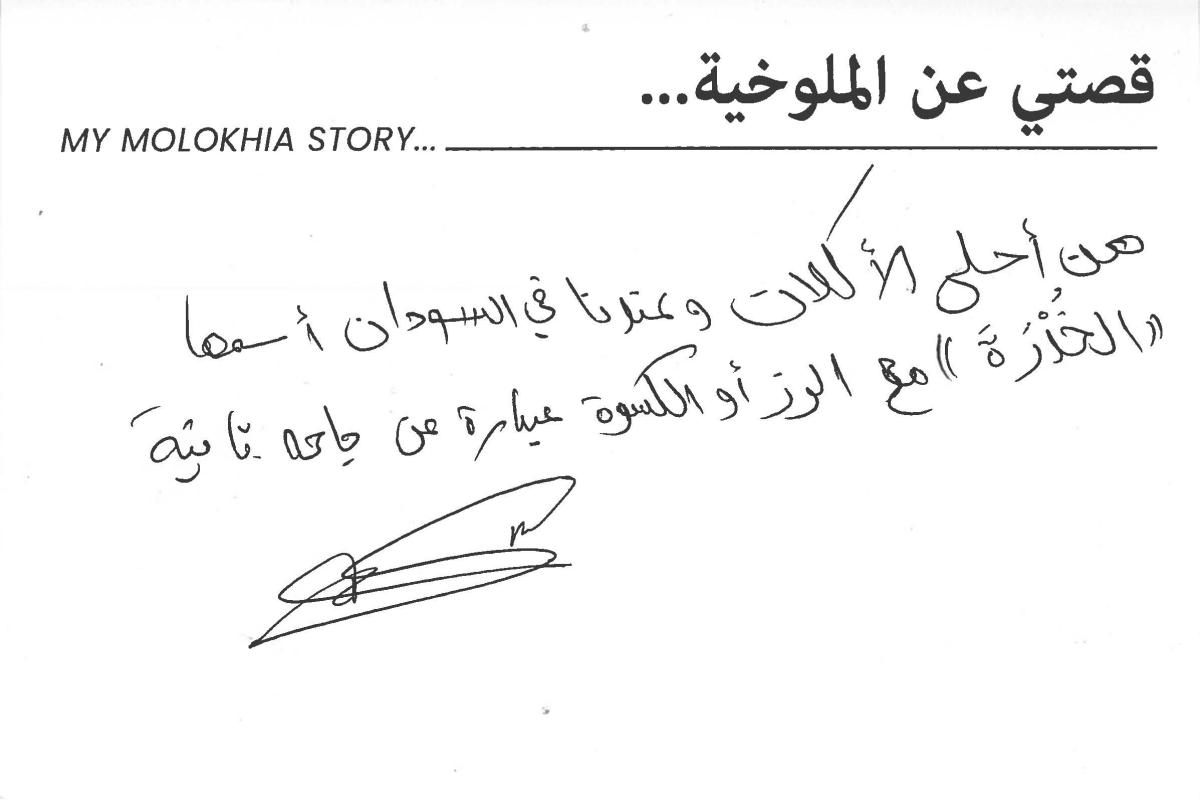 قصتي عن الملوخية...
MY MOLOKHIA STORY...
من أحلى الأكلات وعندنا في السودان أسمها
"الخُدْرَةَ" مع الرز أو الكسرة عبارة عن حاجه تانية